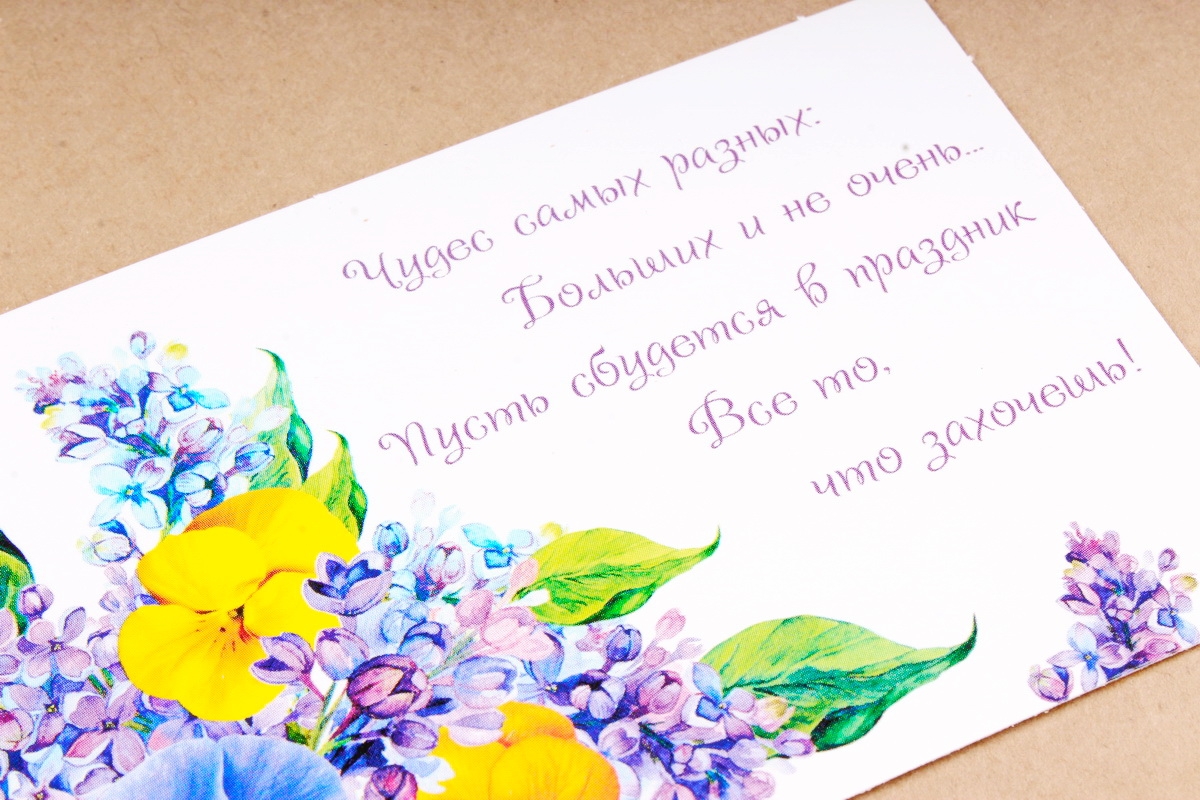 Чудес самых разных:
Больших и не очень...
Пусть сбудется в праздник
Все то,
что захочешь!